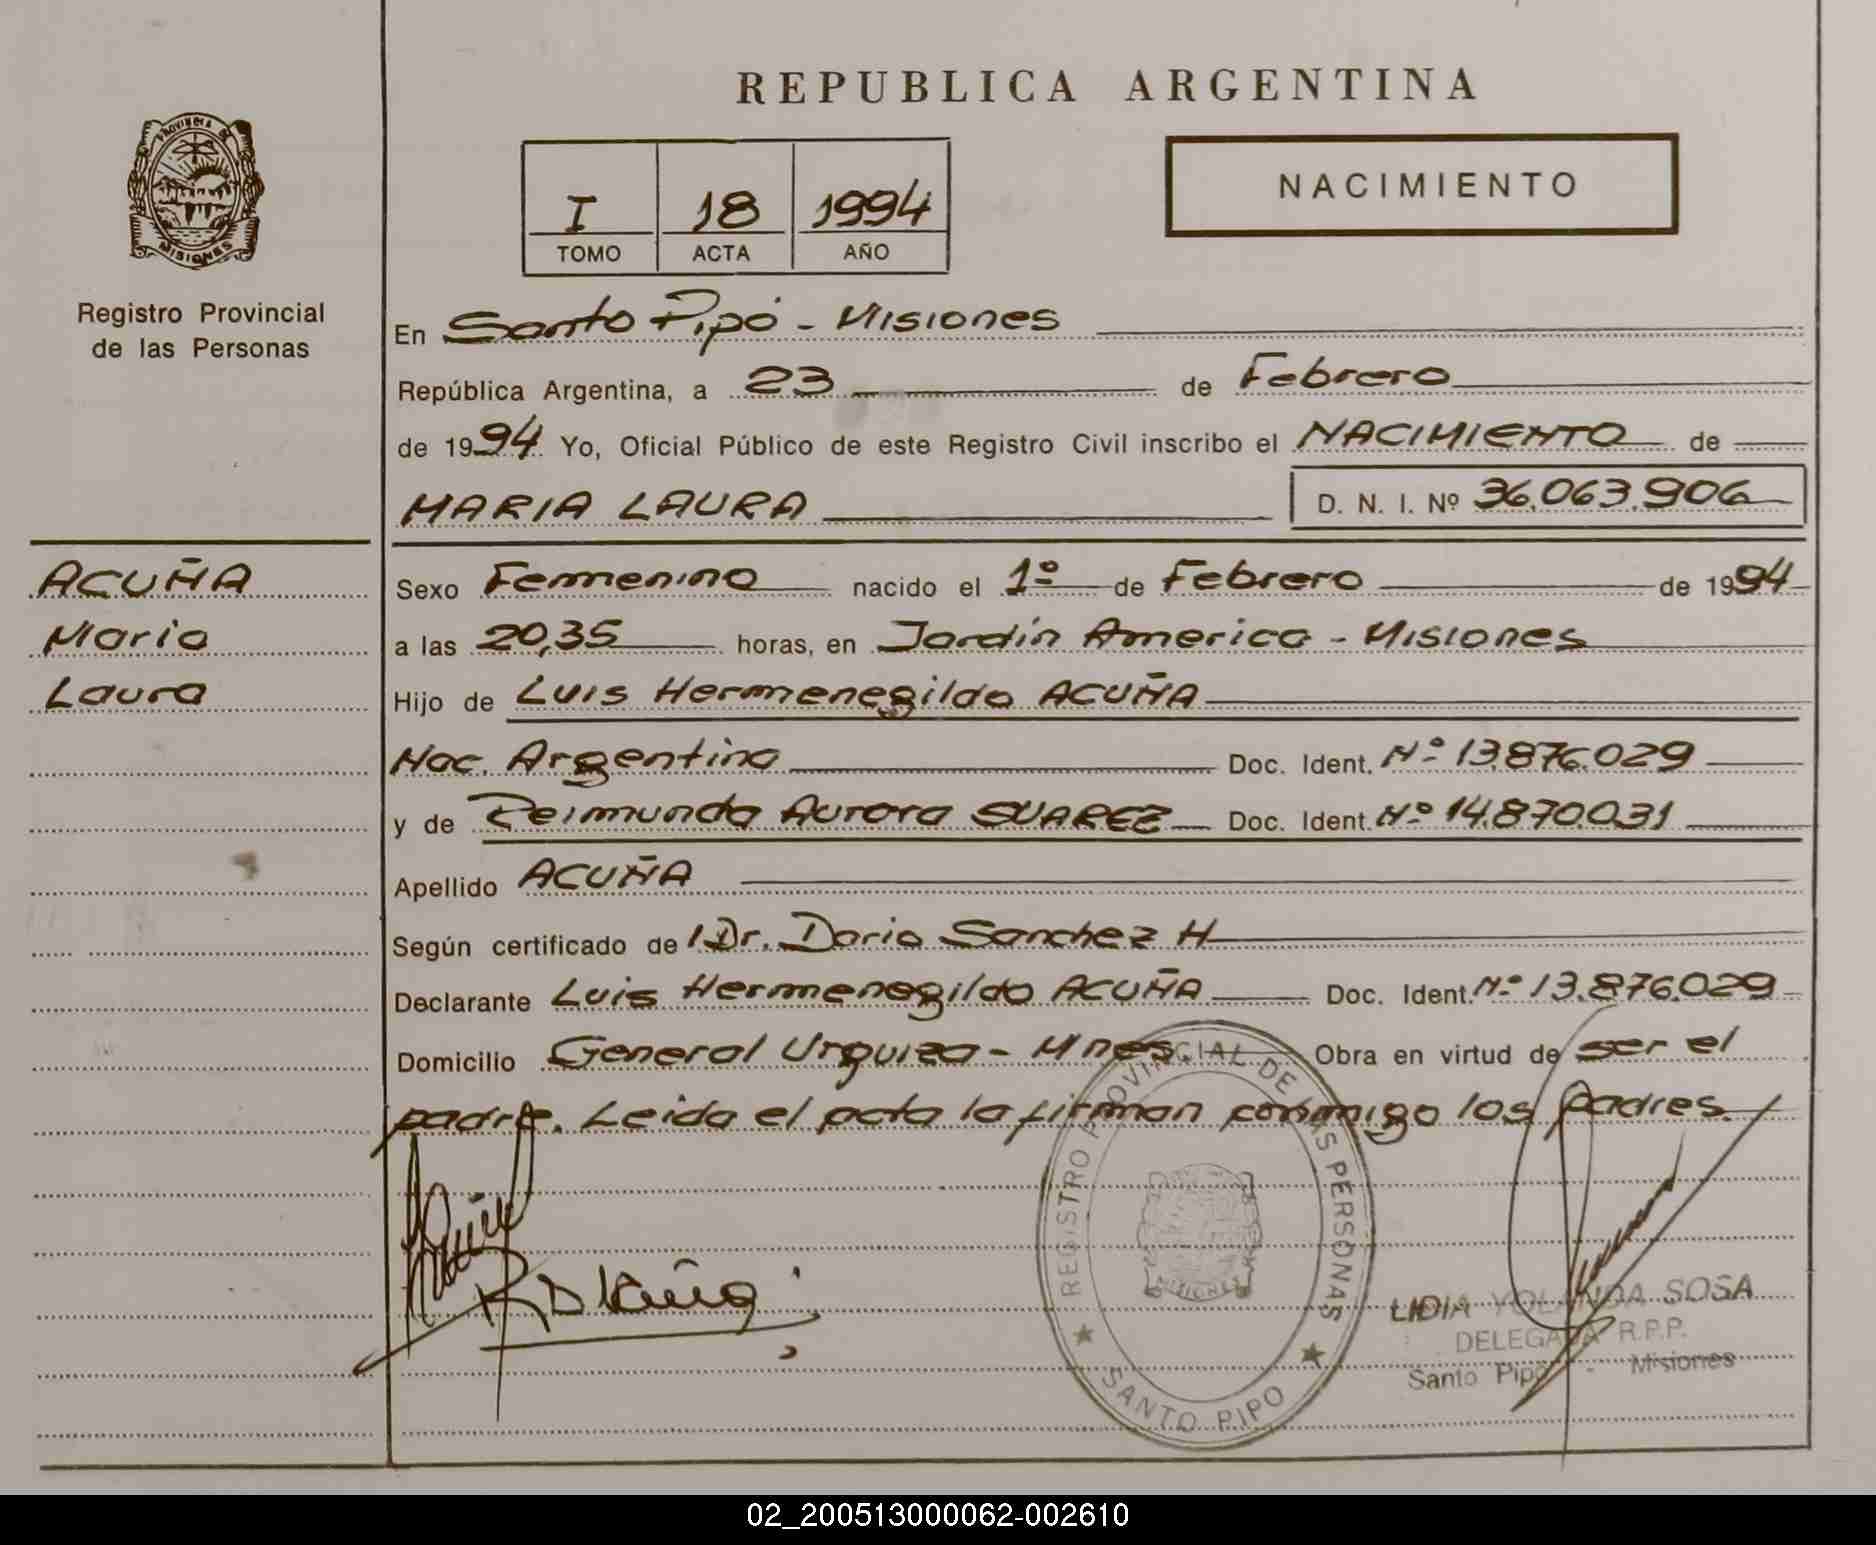 REPUBLICA ARGENTINA
PROVINCIA DE
MISIONES
Registro Provincial
de las Personas
I 18 1994
TOMO ACTA AÑO
NACIMIENTO
En Santo Pipó - Misiones
República Argentina, a 23 de Febrero
de 1994 Yo, Oficial Público de este Registro Civil inscribo el NACIMIENTO de
MARIA LAURA D. N. I. Nº 36.063.906
ACUÑA
Maria
Laura
Sexo Femenino nacido el 1º de Febrero de 1994
a las 20,35 horas, en Jardín America - Misiones
Hijo de Luis Hermenegildo ACUÑA
Nac. Argentina Doc. Ident. Nº 13.876.029
y de Reimunda Aurora SUAREZ Doc. Ident. Nº 14.870.031
Apellido ACUÑA
Según certificado de Dr. Dario Sanchez H
Declarante Luis Hermenegildo ACUÑA Doc. Ident. Nº 13.876.029
Domicilio General Urquiza - Mnes. Obra en virtud de ser el
padre. Leida el acta la firman conmigo los padres.
REGISTRO PROVINCIAL DE LAS PERSONAS
MISIONES
SANTO PIPO
LIDIA YOLANDA SOSA
DELEGADA R.P.P.
Santo Pipó - Misiones
02_200513000062-002610